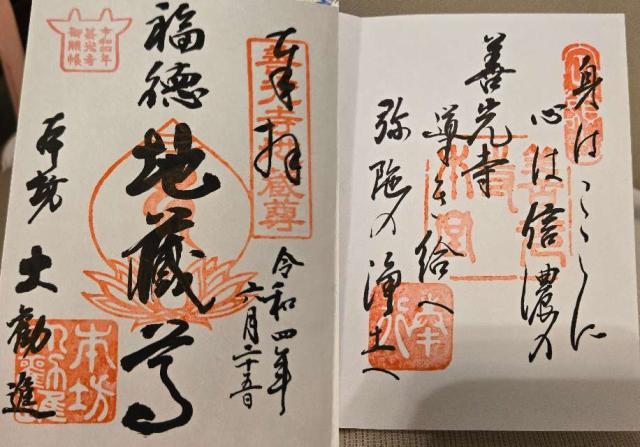 身はこゝに
心は信濃の
善光寺
導き給へ
弥陀の浄土へ
奉拝
令和四年
六月二十五日
福徳
地蔵尊
本坊
大勧進
令和四年
善光寺
御開帳
本坊
大勧進